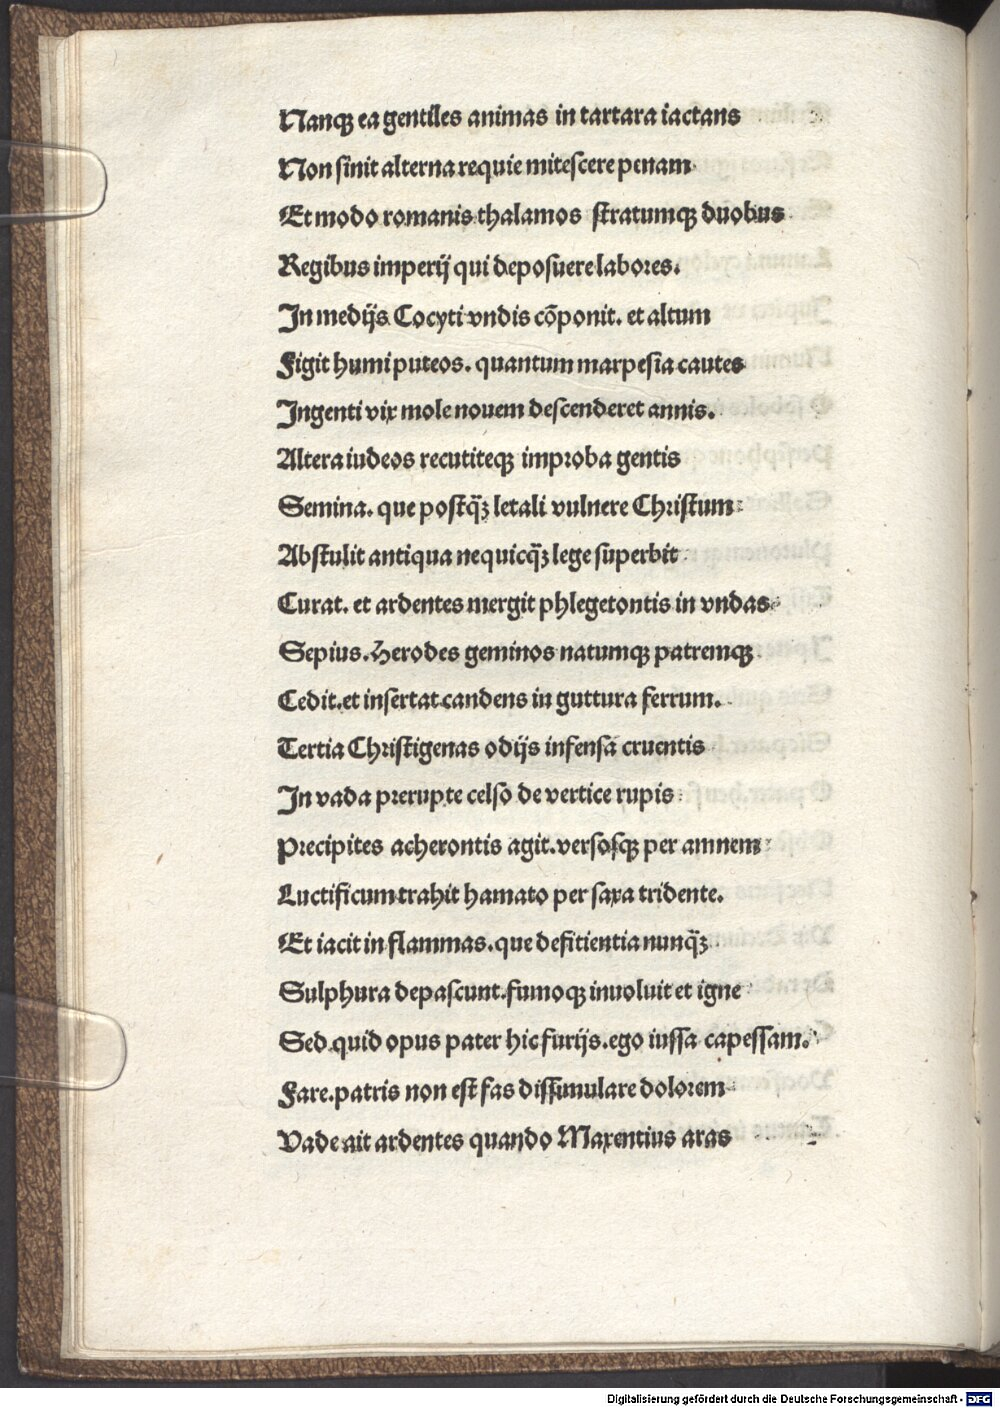 Nanqꝫ ea gentiles animas in tartara iactans
Non sinit alterna requie mitescere penam
Et modo romanis thalamos stratumqꝫ duobus
Regibus imperij qui deposuere labores.
In medijs Cocyti vndis cōponit. et altum
Figit humi puteos. quantum marpesia cautes
Ingenti vix mole nouem descenderet annis.
Altera iudeos recutiteqꝫ improba gentis
Semina. que postq̄ꝫ letali vulnere Christum
Abstulit antiqua nequicq̄ꝫ lege superbit
Curat. et ardentes mergit phlegetontis in vndas
Sepius. Herodes geminos natumqꝫ patremqꝫ
Cedit. et insertat candens in guttura ferrum.
Tertia Christigenas odijs infensa cruentis
In vada prerupte celso de vertice rupis
Precipites acherontis agit. versosqꝫ per amnem
Luctificum trahit hamato per saxa tridente.
Et iacit in flammas. que defitientia nunq̄ꝫ
Sulphura depascunt. fumoqꝫ inuoluit et igne
Sed quid opus pater hic furijs. ego iussa capessam.
Fare. patris non est fas dissimulare dolorem
Vade ait ardentes quando Maxentius aras
Digitalisierung gefördert durch die Deutsche Forschungsgemeinschaft - DFG